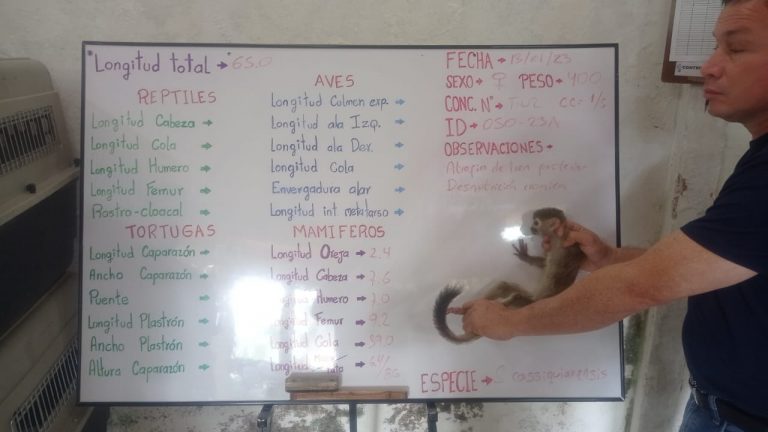 Longitud total → 65.0
REPTILES
Longitud Cabeza →
Longitud Cola →
Longitud Humero →
Longitud Femur →
Rostro-cloacal →
TORTUGAS
Longitud Caparazón →
Ancho Caparazón →
Puente →
Longitud Plastrón →
Ancho Plastrón →
Altura Caparazón →
AVES
Longitud Culmen exp. →
Longitud ala Izq. →
Longitud ala Der. →
Longitud Cola →
Envergadura alar →
Longitud int. metatarso →
MAMIFEROS
Longitud Oreja → 2.4
Longitud Cabeza → 7.6
Humero → 7.0
Femur → 9.2
Longitud Cola →
Longitud
FECHA →
SEXO → ♀ PESO → 400
CONC. N° →
ID → 050-23A
OBSERVACIONES →
ESPECIE → cassiquiarensis